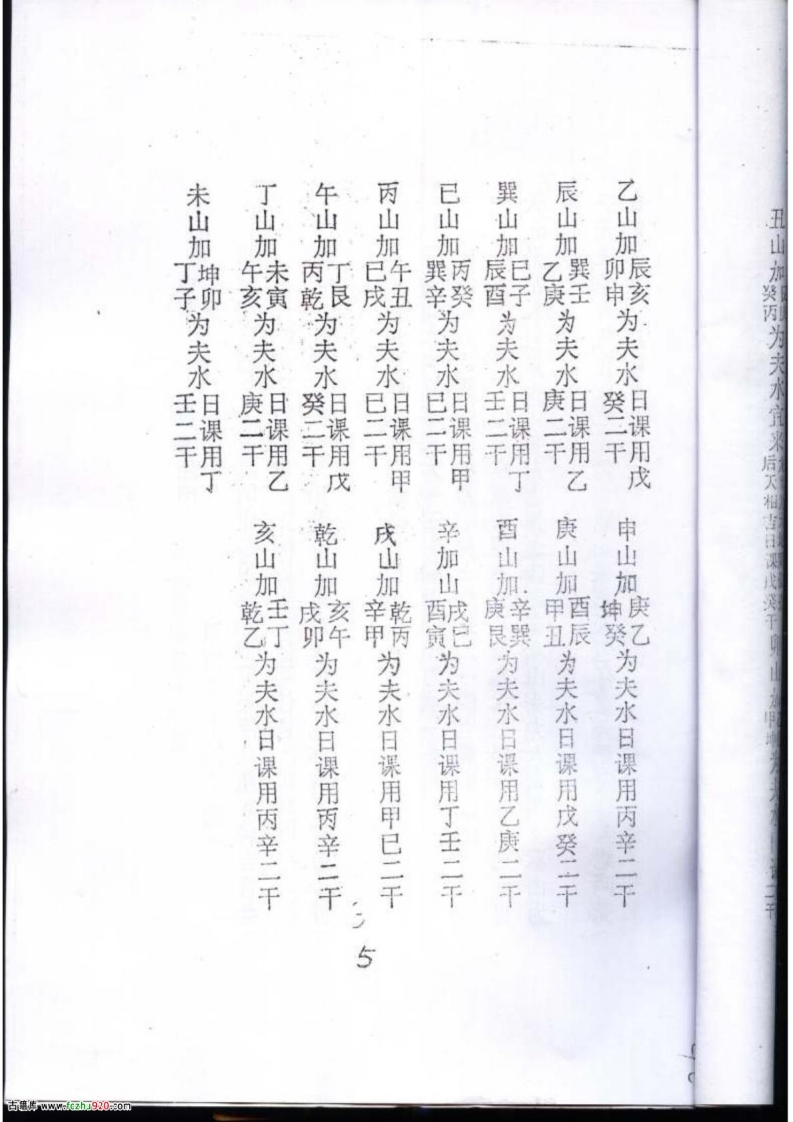 丑山加癸丙为夫水宜来
卯山加
乙山加辰亥卯申为夫水日课用戊癸二干
辰山加巽壬乙庚为夫水日课用乙庚二干
巽山加巳子辰酉为夫水日课用丁壬二干
巳山加丙癸巽辛为夫水日课用甲巳二干
丙山加午丑巳戌为夫水日课用甲巳二干
午山加丁艮丙乾为夫水日课用戊癸二干
丁山加未寅午亥为夫水日课用乙庚二干
未山加坤卯丁子为夫水日课用丁壬二干
申山加庚乙坤癸为夫水日课用丙辛二干
庚山加酉辰甲丑为夫水日课用戊癸二干
酉山加辛巽庚艮为夫水日课用乙庚二干
辛加山戌巳酉寅为夫水日课用丁壬二干
戌山加乾丙辛甲为夫水日课用甲巳二干
乾山加亥午戌卯为夫水日课用丙辛二干
亥山加壬丁乾乙为夫水日课用丙辛二干
5
古籍库 www.fczhu920.com